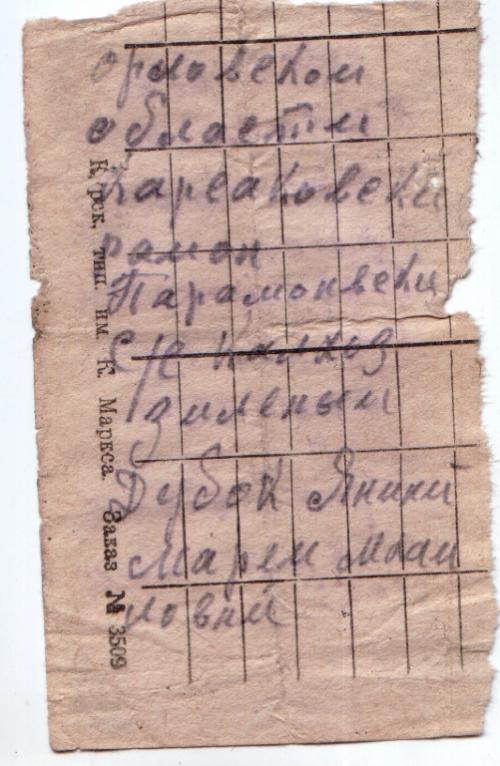 орловскои
области
Карсаковски
раион
Парамонвски
с/с калхоз
зиленыи
Дубок Янинй
Марем Михаи
ловни
К.рск, тип. им. К. Маркса. Заказ № 3509